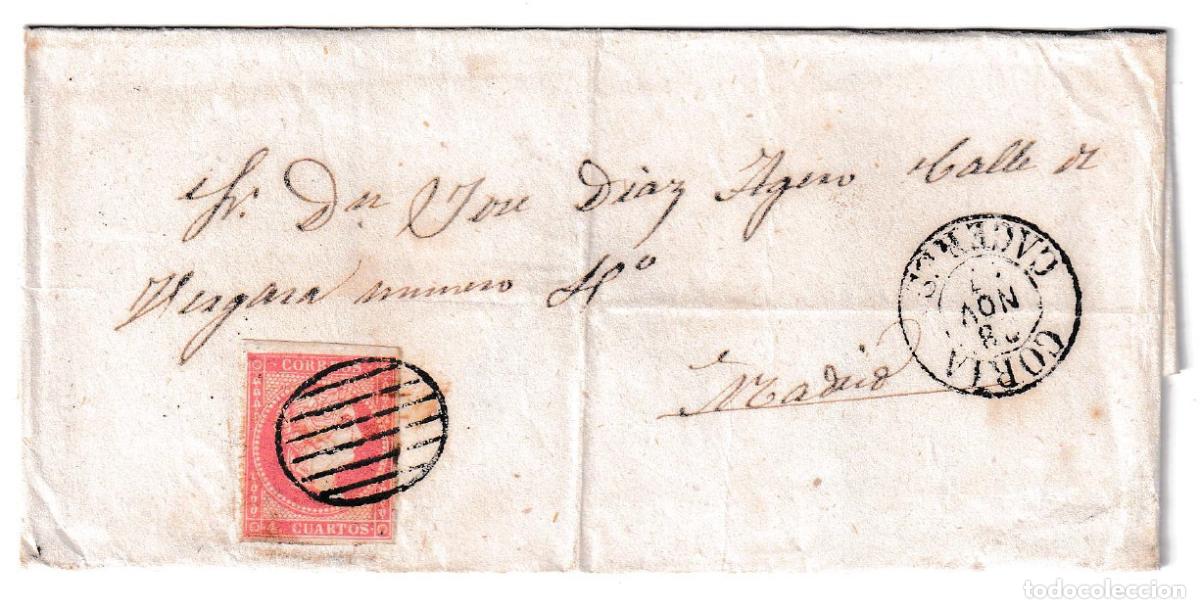 Sr. Dn Jose Diaz Agero Calle de
Vergara numero 4º
Madrid
CORREOS
4 CUARTOS
CORIA
NOV
CACERES
todocoleccion